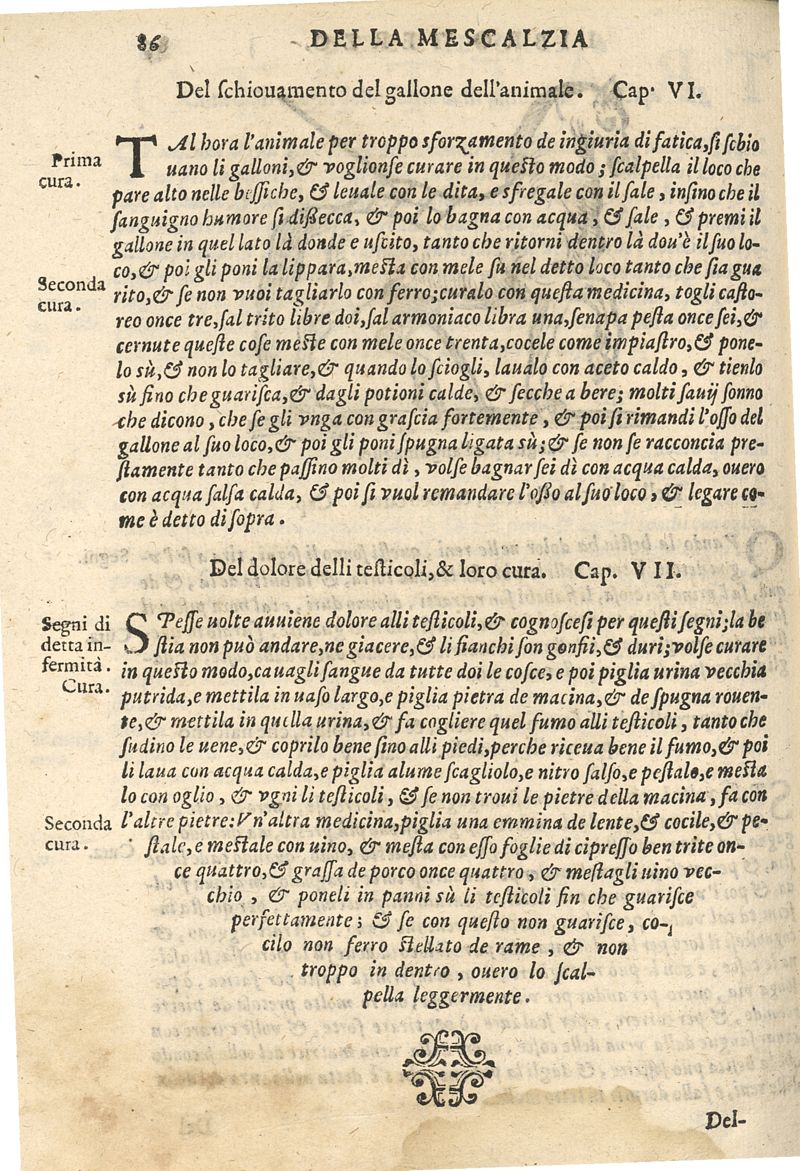 86 DELLA MESCALZIA
Del ſchiouamento del gallone dell'animale. Cap. VI.
Prima
cura.
TAl hora l'animale per troppo sforzamento de ingiuria di fatica, ſi ſchio
uano li galloni, & voglionſe curare in queſto modo; ſcalpella il loco che
pare alto nelle beſſiche, & leuale con le dita, e sfregale con il ſale, inſino che il
ſanguigno humore ſi diſſecca, & poi lo bagna con acqua, & ſale, & premi il
gallone in quel lato là donde e uſcito, tanto che ritorni dentro là dou'è il ſuo lo-
co, & poi gli poni la lippara, meſta con mele su nel detto loco tanto che ſia gua
Seconda
cura.
rito, & ſe non vuoi tagliarlo con ferro; curalo con queſta medicina, togli caſto-
reo once tre, ſal trito libre doi, ſal armoniaco libra una, ſenapa peſta once ſei, &
cernute queſte coſe meſte con mele once trenta, cocele come impiaſtro, & pone-
lo sù, & non lo tagliare, & quando lo ſciogli, laualo con aceto caldo, & tienlo
sù fino che guariſca, & dagli potioni calde, & ſecche a bere; molti ſauij ſonno
che dicono, che ſe gli vnga con graſcia fortemente, & poi ſi rimandi l'oſſo del
gallone al ſuo loco, & poi gli poni ſpugna ligata sù; & ſe non ſe racconcia pre-
ſtamente tanto che paſſino molti dì, volſe bagnar ſei dì con acqua calda, ouero
con acqua ſalſa calda, & poi ſi vuol remandare l'oſſo al ſuo loco, & legare co-
me è detto di ſopra.
Del dolore delli teſticoli, & loro cura. Cap. VII.
Segni di
detta in-
fermità.
Cura.
SPeſſe uolte auuiene dolore alli teſticoli, & cognoſceſi per queſti ſegni; la be
ſtia non può andare, ne giacere, & li fianchi ſon gonfii, & duri; volſe curare
in queſto modo, cauagli ſangue da tutte doi le coſce, e poi piglia urina vecchia
putrida, e mettila in uaſo largo, e piglia pietra de macina, & de ſpugna rouen-
te, & mettila in quella urina, & fa cogliere quel fumo alli teſticoli, tanto che
ſudino le uene, & coprilo bene fino alli piedi, perche riceua bene il fumo, & poi
li laua con acqua calda, e piglia alume ſcagliolo, e nitro ſalſo, e peſtale, e meſta
lo con oglio, & vgni li teſticoli, & ſe non troui le pietre della macina, fa con
Seconda
cura.
l'altre pietre: Vn'altra medicina, piglia una emmina de lente, & cocile, & pe-
ſtale, e meſtale con uino, & meſta con eſſo foglie di cipreſſo ben trite on-
ce quattro, & graſſa de porco once quattro, & meſtagli uino vec-
chio, & poneli in panni sù li teſticoli fin che guariſce
perfettamente; & ſe con queſto non guariſce, co-
cilo non ferro ſtellato de rame, & non
troppo in dentro, ouero lo ſcal-
pella leggermente.
Del-